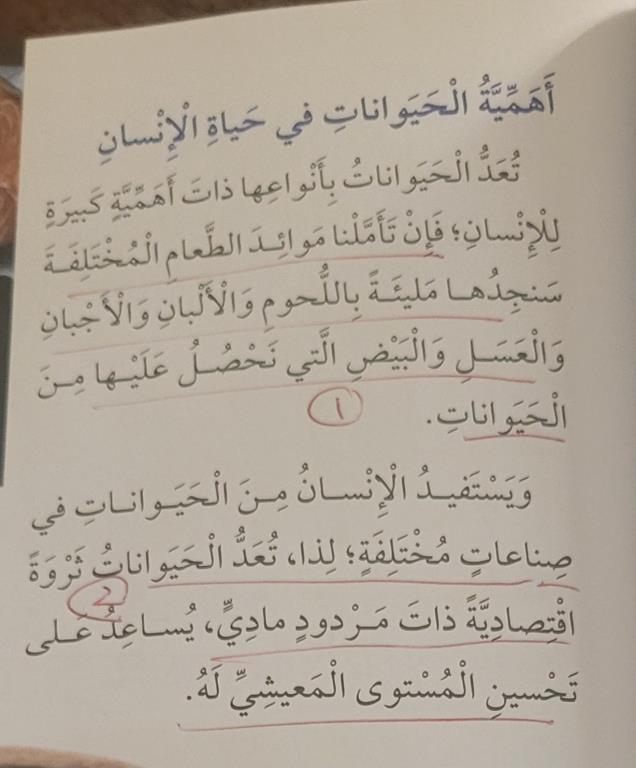 أَهَمِّيَّةُ الْحَيَواناتِ في حَياةِ الْإِنْسانِ
تُعَدُّ الْحَيَواناتُ بِأَنْواعِها ذاتَ أَهَمِّيَّةٍ كَبيرَةٍ
لِلْإِنْسانِ؛ فَإِنْ تَأَمَّلْنا مَوائِدَ الطَّعامِ الْمُخْتَلِفَةَ
سَنجِدُها مَليئَةً بِاللُّحومِ وَالْأَلْبانِ وَالْأَجْبانِ
وَالْعَسَلِ وَالْبَيْضِ الَّتي نَحْصُلُ عَلَيْها مِنَ
الْحَيَواناتِ.
١
وَيَسْتَفيدُ الْإِنْسانُ مِنَ الْحَيَواناتِ في
صِناعاتٍ مُخْتَلِفَةٍ؛ لِذا، تُعَدُّ الْحَيَواناتُ ثَرْوَةً
2
اقْتِصادِيَّةً ذاتَ مَرْدودٍ مادِيٍّ، يُساعِدُ عَلى
تَحْسينِ الْمُسْتوى الْمَعيشِيِّ لَهُ.